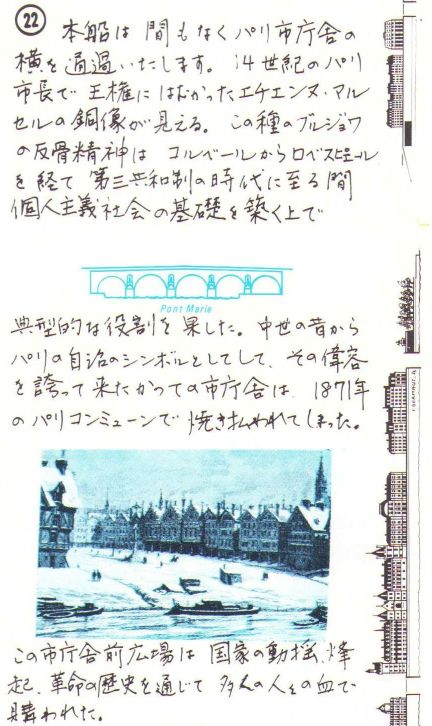 22
本船は 間もなくパリ市庁舎の
横を通過いたします。14世紀のパリ
市長で 王権にはむかったエチエンヌ・マル
セルの銅像が見える。この種のブルジョワ
の反骨精神は コルベールからロベスピエール
を経て 第三共和制の時代に至る間
個人主義社会の基礎を築く上で
Pont Marie
典型的な役割を果した。中世の昔から
パリの自治のシンボルとしてして、その偉容
を誇って来たかつての市庁舎は、1871年
のパリコンミューンで 焼き払われてしまった。
この市庁舎前広場は 国家の動揺、烽
起、革命の歴史を通じて 多くの人々の血で
購われた。